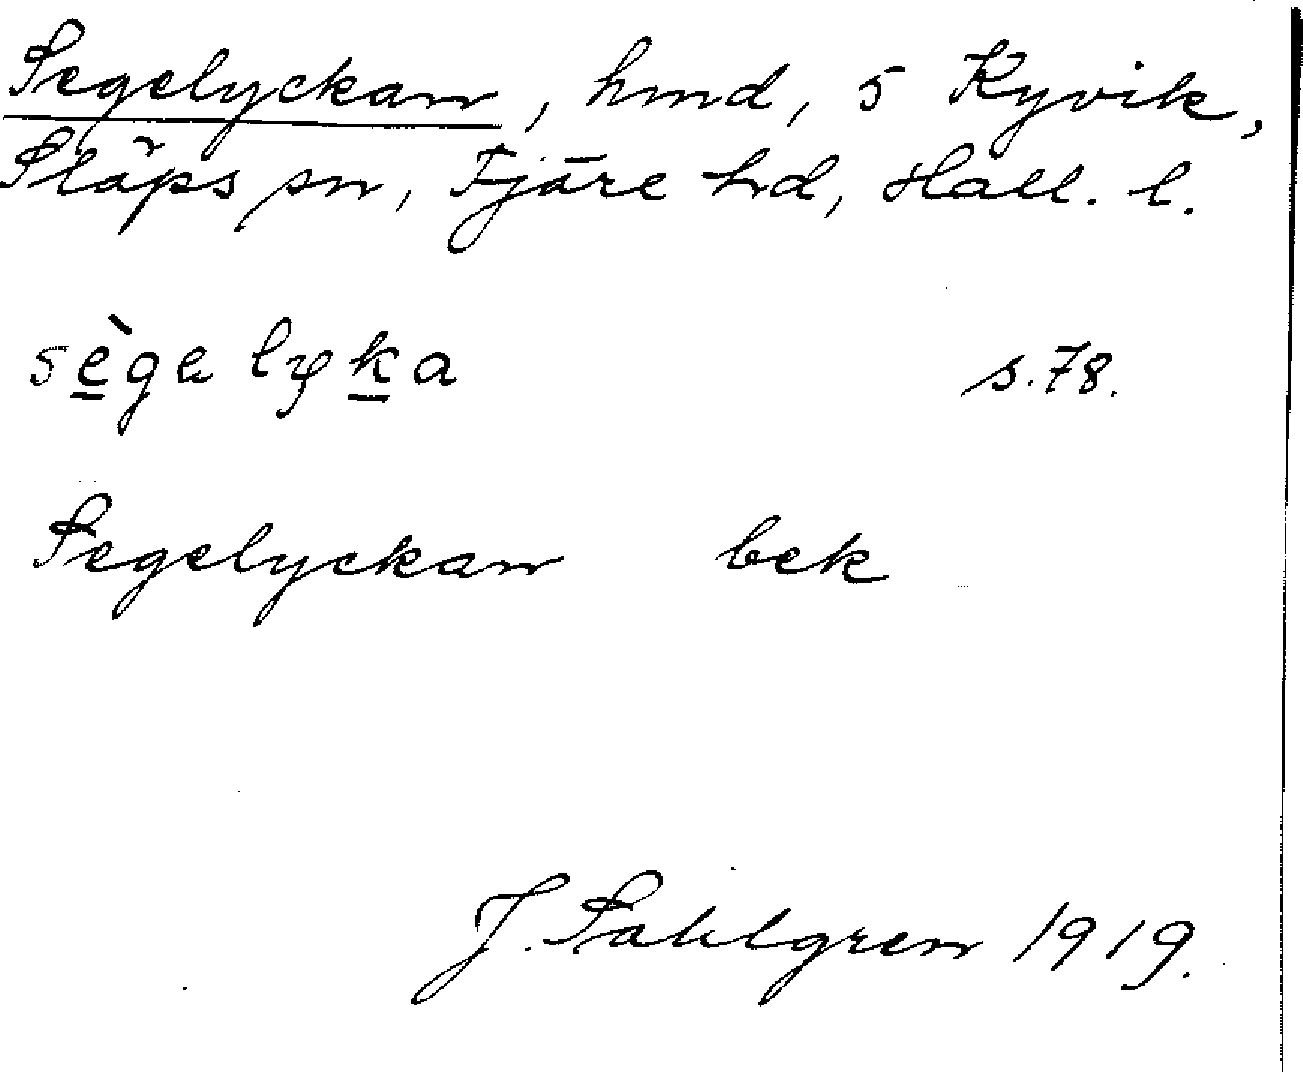 Segelyckan, hmd, 5 Kyvik,
Släps sn, Fjäre hd, Hall. l.
sègelyka s.78.
Segelyckan bek
J. Sahlgren 1919.